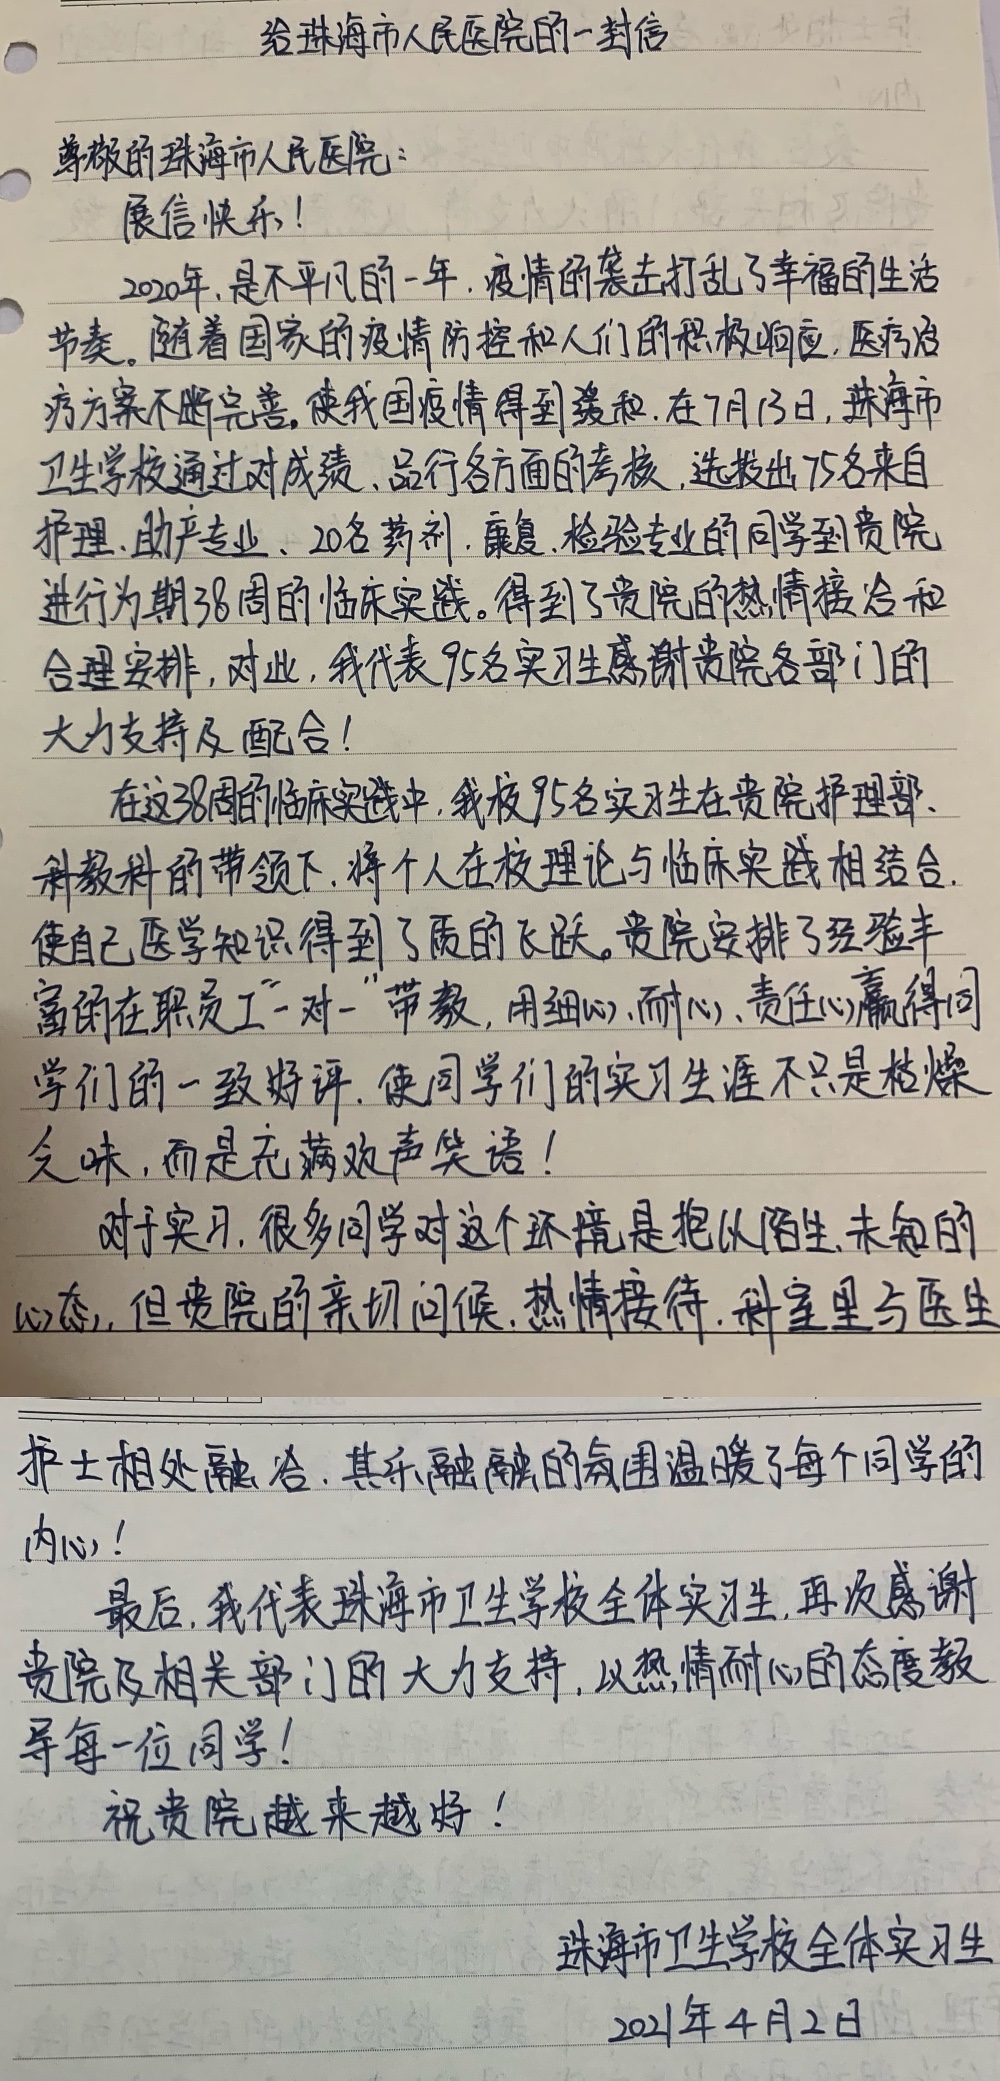 给珠海市人民医院的一封信
尊敬的珠海市人民医院：
展信快乐！
2020年，是不平凡的一年，疫情的袭击打乱了幸福的生活
节奏。随着国家的疫情防控和人们的积极响应，医疗治
疗方案不断完善。使我国疫情得到缓和，在7月13日，珠海市
卫生学校通过对成绩、品行各方面的考核，选拔出75名来自
护理、助产专业、20名药剂、康复、检验专业的同学到贵院
进行为期38周的临床实践。得到了贵院的热情接洽和
合理安排，对此，我代表95名实习生感谢贵院各部门的
大力支持及配合！
在这38周的临床实践中，我校95名实习生在贵院护理部、
科教科的带领下，将个人在校理论与临床实践相结合，
使自己医学知识得到了质的飞跃。贵院安排了经验丰
富的在职员工“一对一”带教，用细心、耐心、责任心赢得同
学们的一致好评，使同学们的实习生涯不只是枯燥
乏味，而是充满欢声笑语！
对于实习，很多同学对这个环境是抱以陌生、未知的
心态，但贵院的亲切问候、热情接待，科室里与医生
护士相处融洽，其乐融融的氛围温暖了每个同学的
内心！
最后，我代表珠海市卫生学校全体实习生，再次感谢
贵院及相关部门的大力支持，以热情耐心的态度教
导每一位同学！
祝贵院越来越好！
珠海市卫生学校全体实习生
2021年4月2日